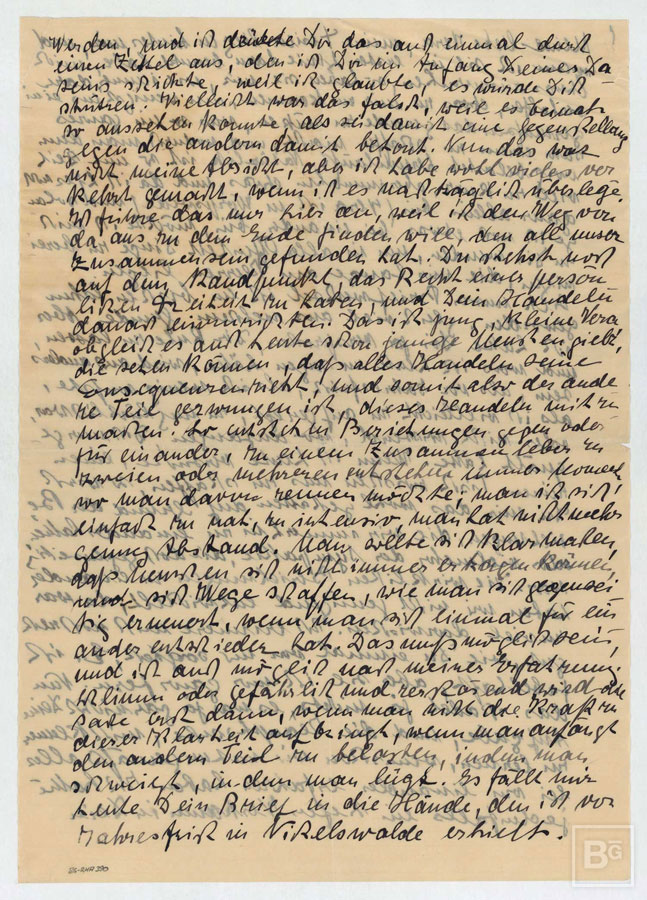 werden, und ich deutete Dir das auf einmal durch
einen Zettel aus, den ich Dir im Anfang Deines Da
seins schickte, weil ich glaubte, es würde Dich
stützen. Vielleicht war das falsch, weil es beinah
so aussehen konnte als sei damit eine Gegenstellung
gegen die andern damit betont. Nun das war
nicht meine Absicht, aber ich habe wohl vieles ver
kehrt gemacht, wenn ich es nachträglich überlege.
Ich führe das nur hier an, weil ich den Weg von
da aus zu dem Ende finden will, den all unser
Zusammensein gefunden hat. Du stehst noch
auf dem Standpunkt, das Recht einer persön
lichen Freiheit zu haben, und Dein Handeln
danach einzurichten. Das ist jung, kleine Vera
obgleich es auch heute schon junge Menschen giebt,
die sehen können, daß alles Handeln seine
Consequenzen zieht, und somit also der ande
re Teil gezwungen ist, dieses Handeln mit zu
machen. So entstehn Beziehungen gegen oder
für einander, zu einem Zusammenleben zu
zweien oder mehreren entstehen immer Momente
wo man davon rennen möchte, man ist sich
einfach zu nah, zu intensiv, man hat nicht mehr
genug Abstand. Man sollte sich klar machen,
daß Menschen sich nicht immer ertragen können,
und sich Wege schaffen, wie man sich gegensei
tig erneuert, wenn man sich einmal für ein
ander entschieden hat. Das muß möglich sein,
und ist auch möglich nach meiner Erfahrung.
Schlimm oder gefährlich und zerstörend wird die
Sache erst dann, wenn man nicht die Kraft zu
dieser Klarheit aufbringt, wenn man anfängt
den andern Teil zu belasten, indem man
schweigt, indem man lügt. Es fällt mir
heute Dein Brief in die Hände, den ich vor
Jahresfrist in Nickelswalde erhielt.
BG